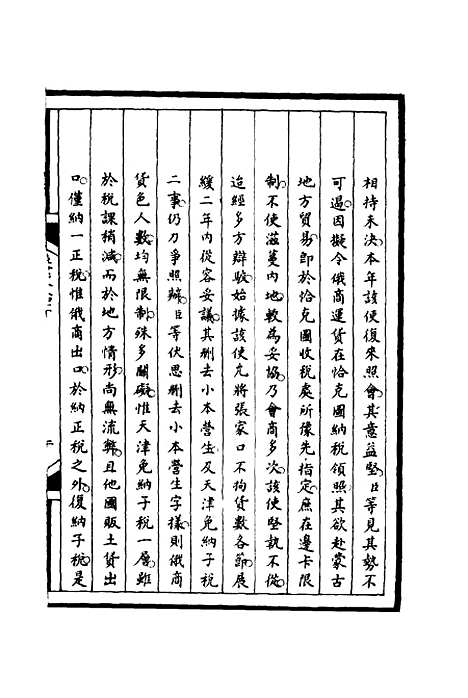 相持未決本年該使復來照會其意益堅臣等見其勢不
可遏因擬令俄商運貨在恰克圖納稅領照其欲赴蒙古
地方貿易卽於恰克圖收稅處所豫先指定庶在邊卡限
制不使滋蔓內地較為妥協乃會商多次該使堅執不從
迨經多方辯駁始據該使允將張家口不拘貨數各節展
緩二年內從容妥議其刪去小本營生及天津免納子稅
二事仍力爭照辦臣等伏思刪去小本營生字樣則俄商
貨色人數均無限制殊多關礙惟天津免納子稅一層雖
於稅課稍減而於地方情形尚無流弊且他國販土貨出
口僅納一正稅惟俄商出口於納正稅之外復納子稅是